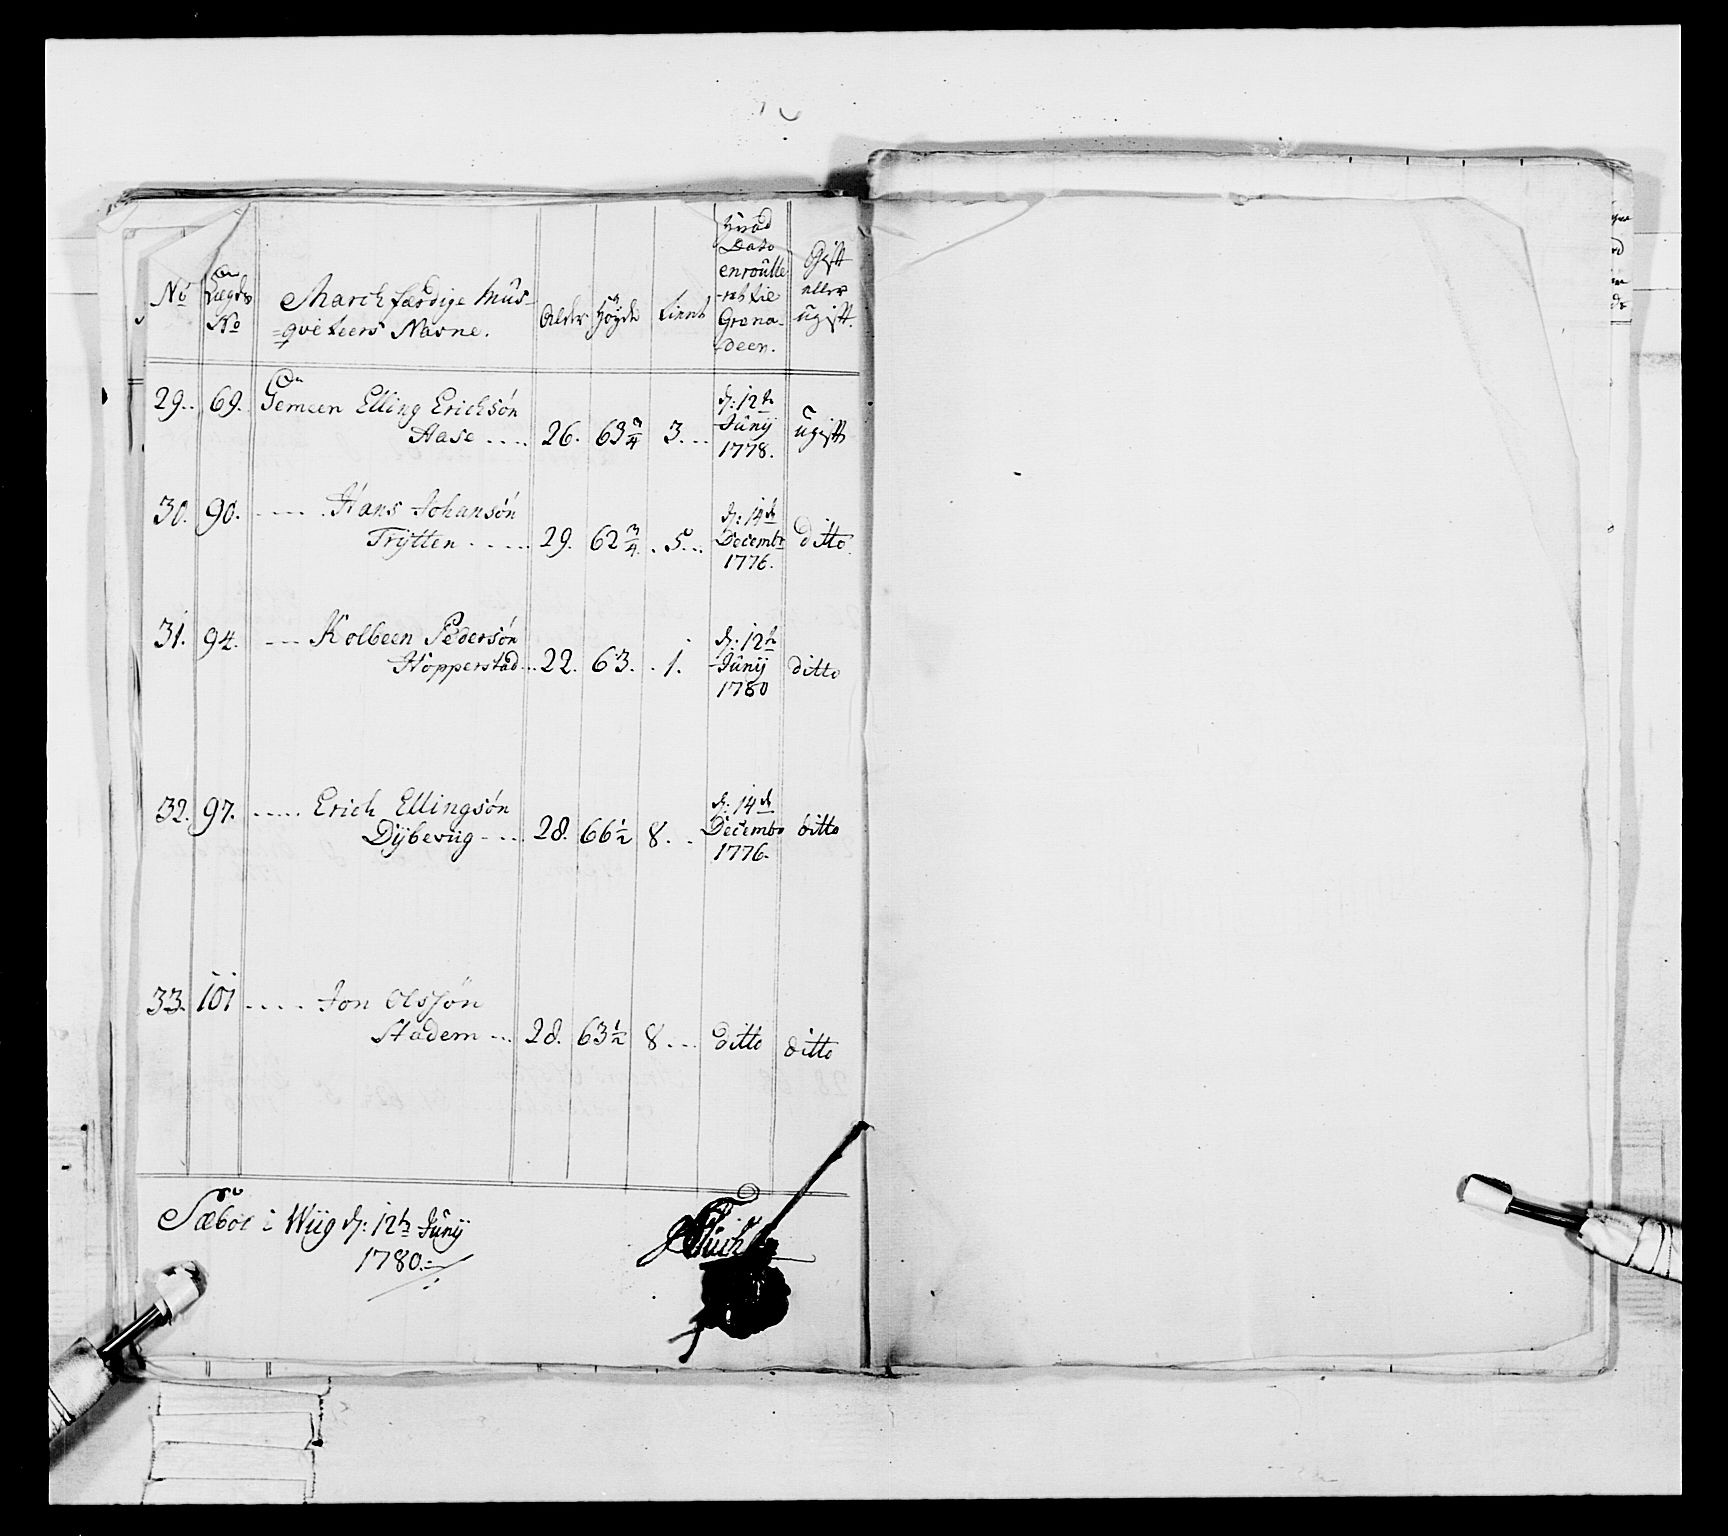 No
Lægds
No
March færdige Mus-
=qveteers Navne.
Alder
Høyde
tient
hvad
Dato
enroulle
-ret til
Grena-
deer.
Gift
eller
ugift.
29. 69. Gemeen Elling Erichsøn
Aase .... 26. 63 3/4 3... d: 12te Junij 1778. ugift
30. 90. ---- Hans Johansøn
Trytten ..... 29. 62 3/4 . 5... d: 14de Decembr 1776. ditto
31. 94. --- Kolbeen Pedersøn
Hopperstad .. 22. 63. . 1. d: 12te Junij 1780 ditto
32. 97. ..... Erich Ellingsøn
Dybeviig .... 28. 66 1/2 8. . d: 14de Decembr 1776. ditto
33. 101 .... Jon Olssøn
Stadem ... 28. 63 1/2 8... ditto ditto
Sæboe i Wiig d: 12te Junij
1780.